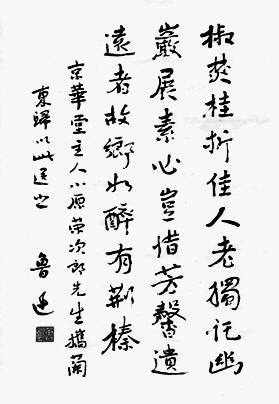 椒焚桂折佳人老獨託幽
巖展素心豈惜芳馨遺
遠者故鄉如醉有荆榛
京華堂主人小原荣次郎先生攜蘭
東歸以此送之
魯迅